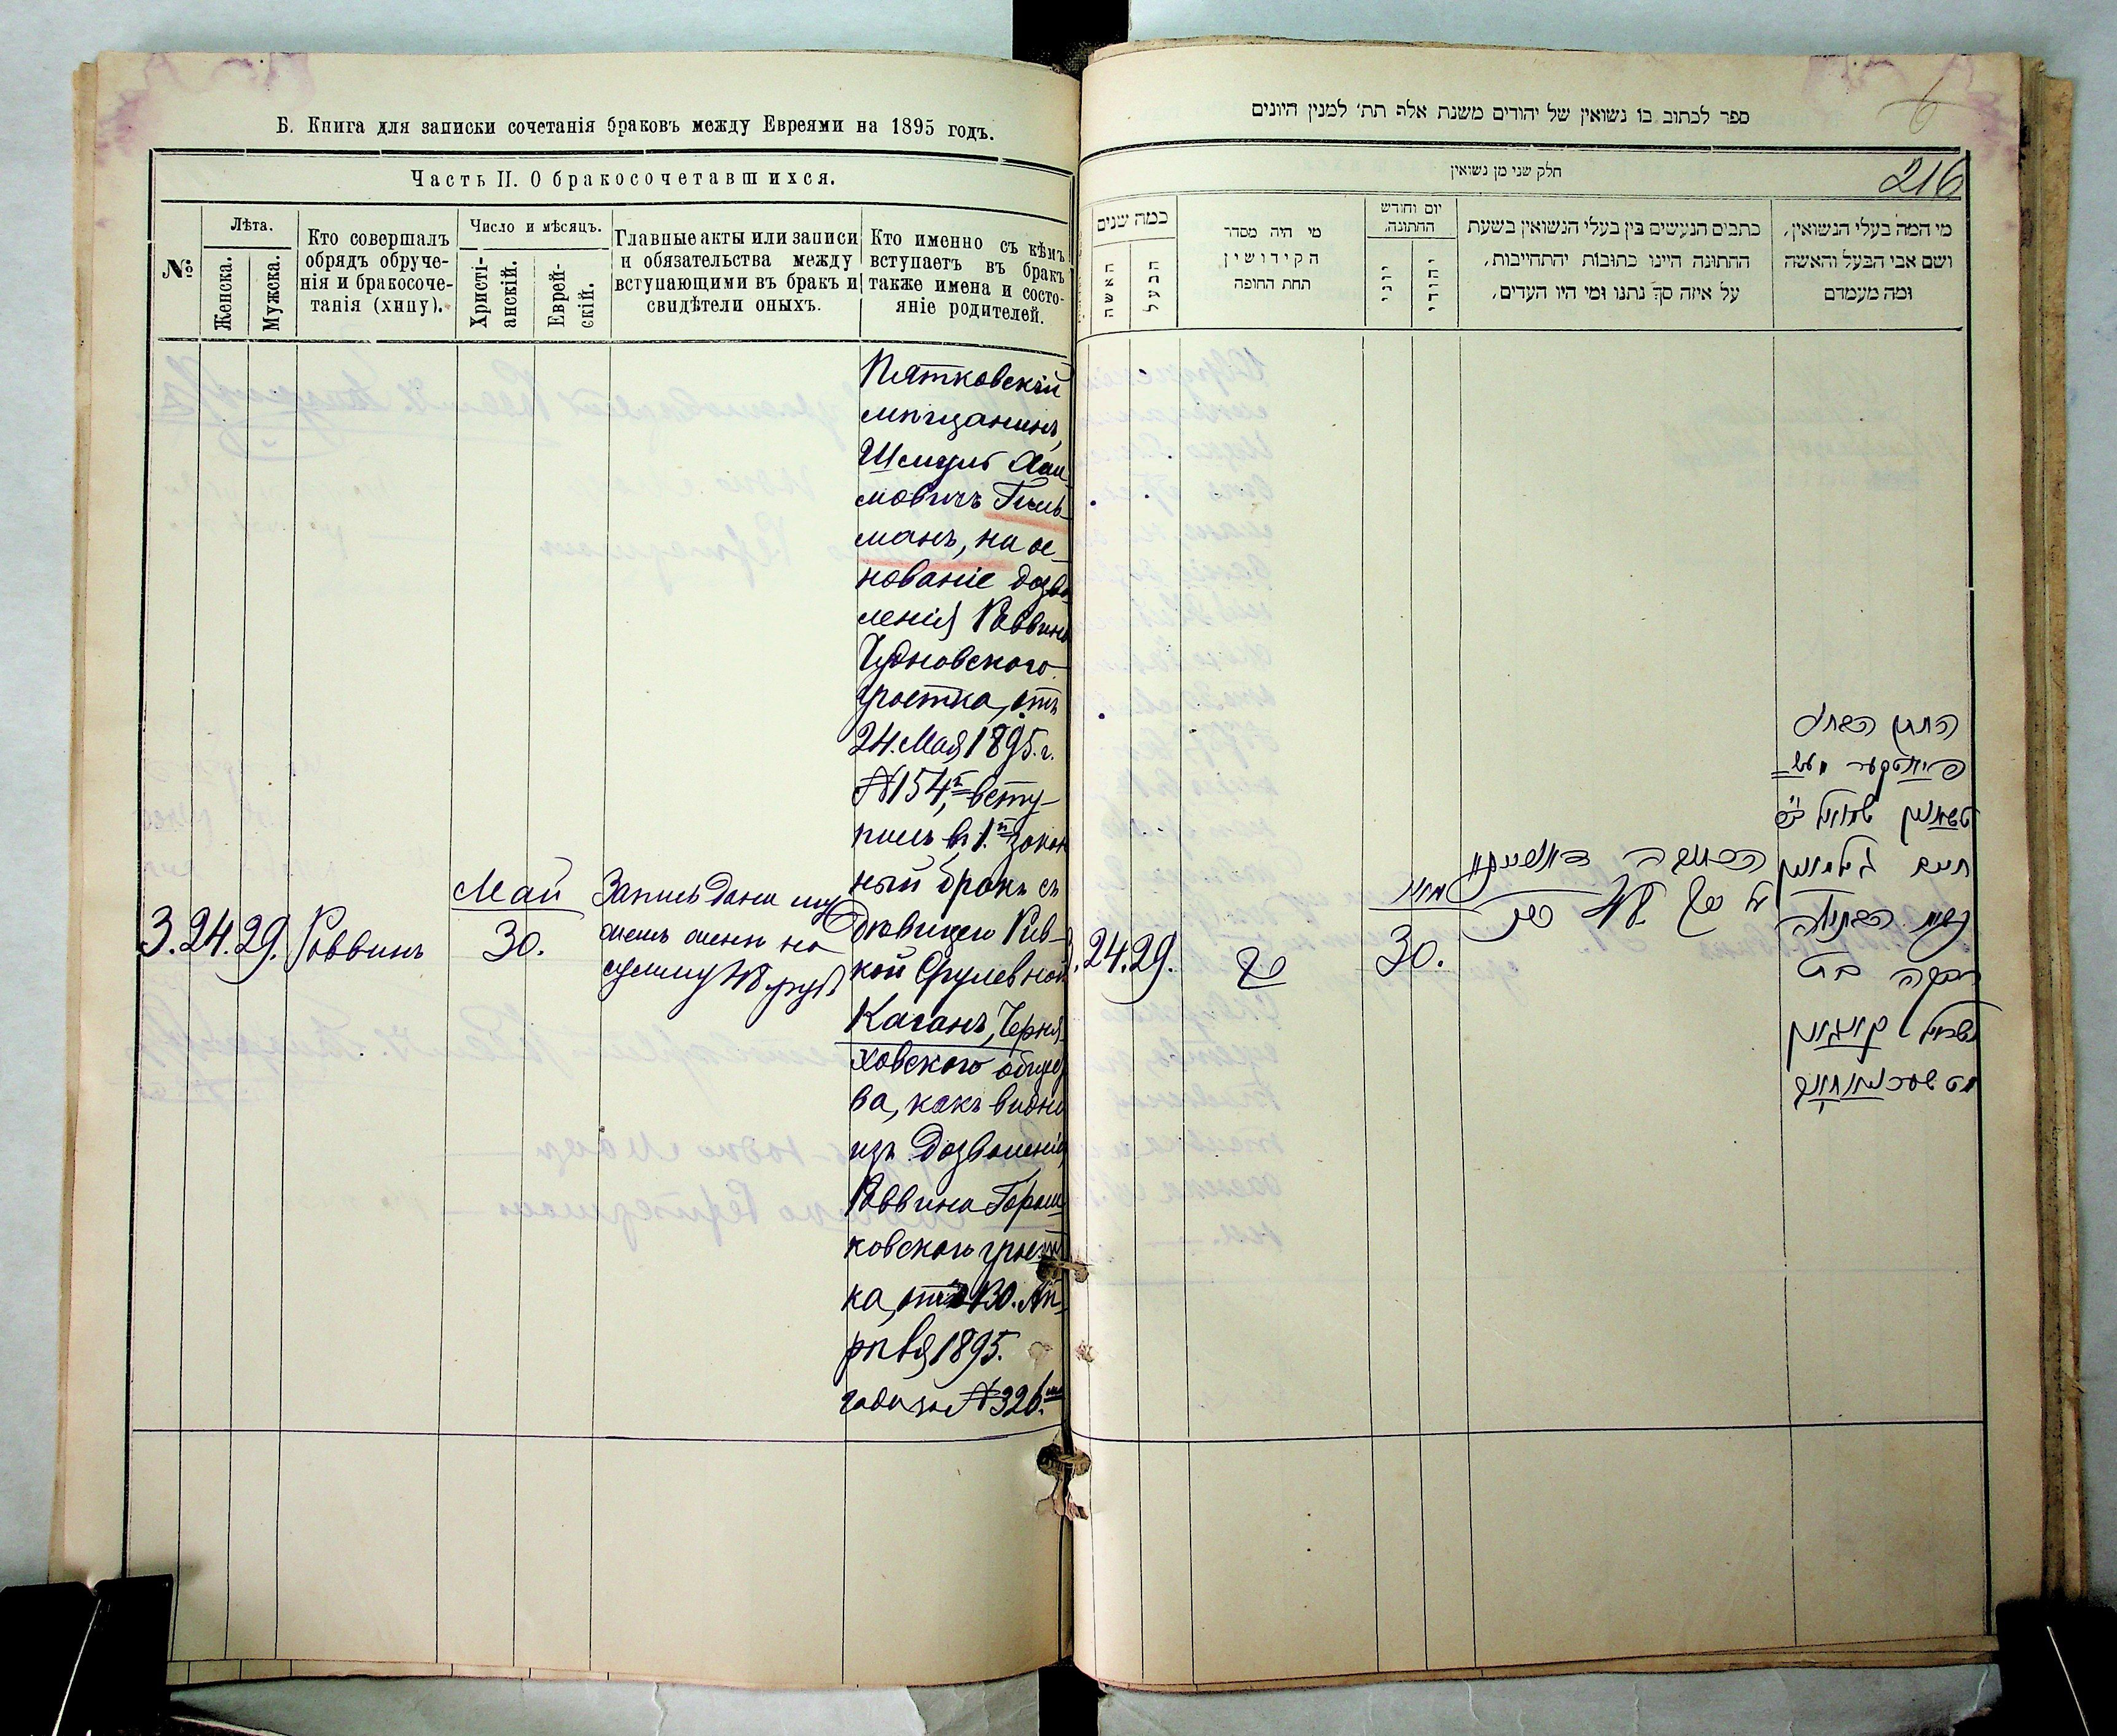 Б. Книга для записки сочетанія браковъ между Евреями на 1895 годъ.
Часть II. О бракосочетавшихся.
№
Лѣта.
Женска.
Мужска.
Кто совершалъ
обрядъ обруче-
нія и бракосоче-
танія (хипу).
Число и мѣсяцъ.
Христі-
анскій.
Еврей-
скій.
Главные акты или записи
и обязательства между
вступающими въ бракъ и
свидѣтели оныхъ.
Кто именно съ кѣмъ
вступаетъ въ бракъ
также имена и состо-
яніе родителей.
3. 24. 29. Раввинъ
Май
30.
Запись дана му
жемъ женѣ на
сумму 48 руб
Пятковскій
мѣщанинъ,
Шмуль Хаи
мовичъ Гиль-
манъ, на ос-
нованіе дозво
ленія Раввина
Чудновского
участка, отъ
24. Мая 1895. г.
№ 154, всту-
пилъ въ 1.й закон
ный бракъ съ
дѣвицею Рив-
кой Срулевной
Каганъ, Черня
ховского общес
ва, какъ видно
изъ Дозволенія
Раввина Горош
ковского участ
ка, отъ 30. Ап-
рѣля 1895.
года за № 326.
ספר לכתוב בו נשואין של יהודים משנת אלף תת׳ למנין היונים
6
216
חלק שני מן נשואין
כמה שנים
האשה
הבעל
מי היה מסדר
הקידושין
תחת החופה
יום וחודש
החתונה,
יוני
יהודי
כתבים הנעשים בין בעלי הנשואין בשעת
ההתונה היינו כתובות יהתחייבות,
על איזה סך נתנו ומי היו העדים,
מי המה בעלי הנשואין,
ושם אבי הבעל והאשה
ומה מעמדם
3. 24. 29.
רב
מאי
30.
הכתובה
על סך 48
החתן הבחור
שמואל
חיים גילמאן
הבתולה
רבקה בת
ישראל